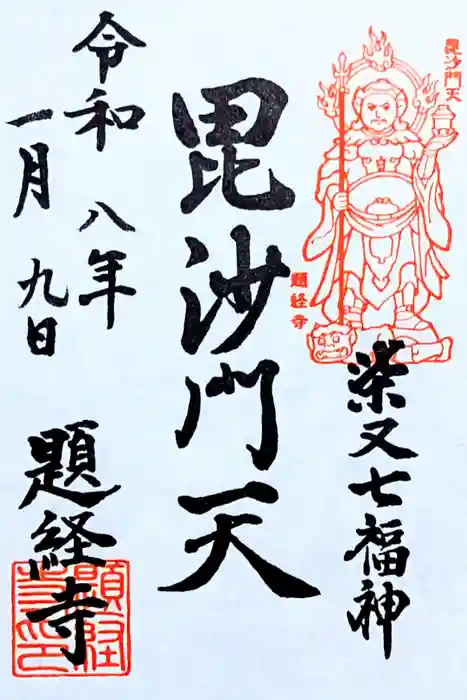 毘沙門天
題経寺
柴又七福神
毘沙門天
令和八年
一月九日
題経寺
題経寺印